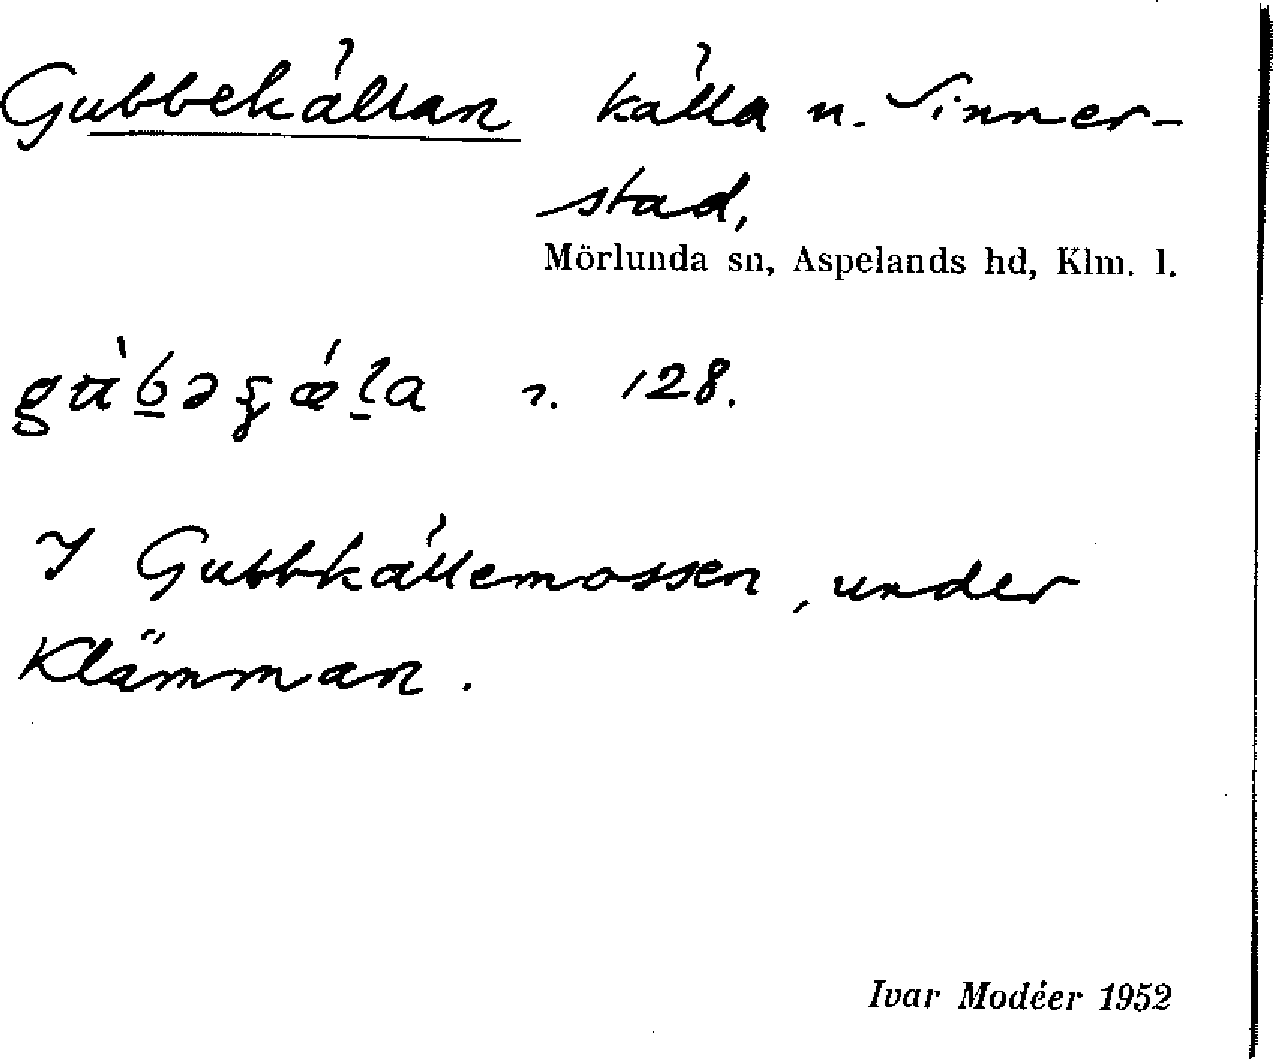 Gubbekällan källa u. Sinner-
stad,
Mörlunda sn, Aspelands hd, Klm. l.
r. 128.
I Gubbkällemossen, under
Klämman.
Ivar Modéer 1952